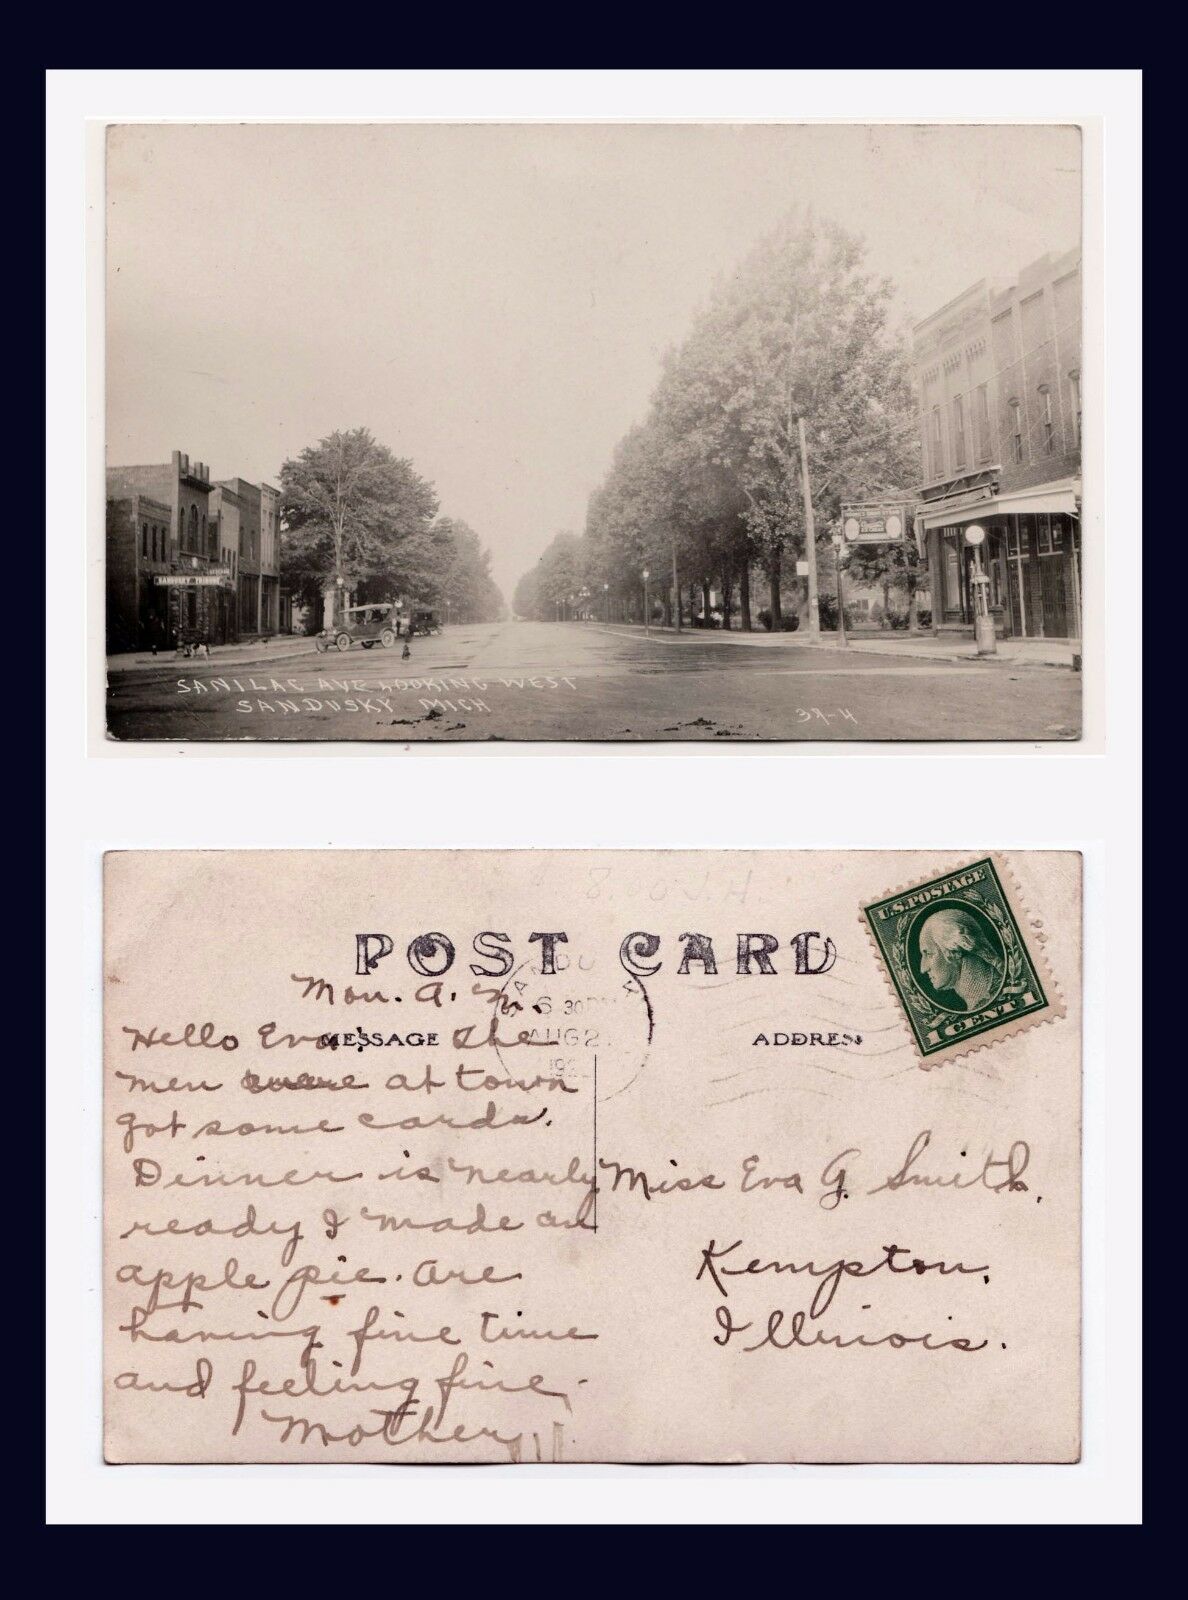 SANDUSKY TRIBUNE
SANILAC AVE LOOKING WEST
SANDUSKY MICH
39-4
8.00 J.H.
POST CARD
U.S. POSTAGE
1 CENT 1
SANDU
6 30 PM
AUG 2
192
Mon. A. M.
MESSAGE
ADDRESS
Hello Eva! The
men were at town
got some cards.
Dinner is nearly
ready I made an
apple pie. Are
having fine time
and feeling fine.
Mother
Miss Eva G. Smith,
Kempton,
Illinois.